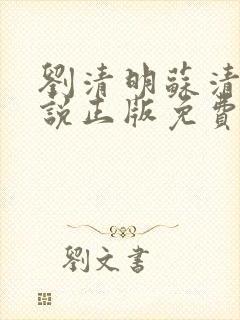 劉清明蘇清
說正版免費
劉文書